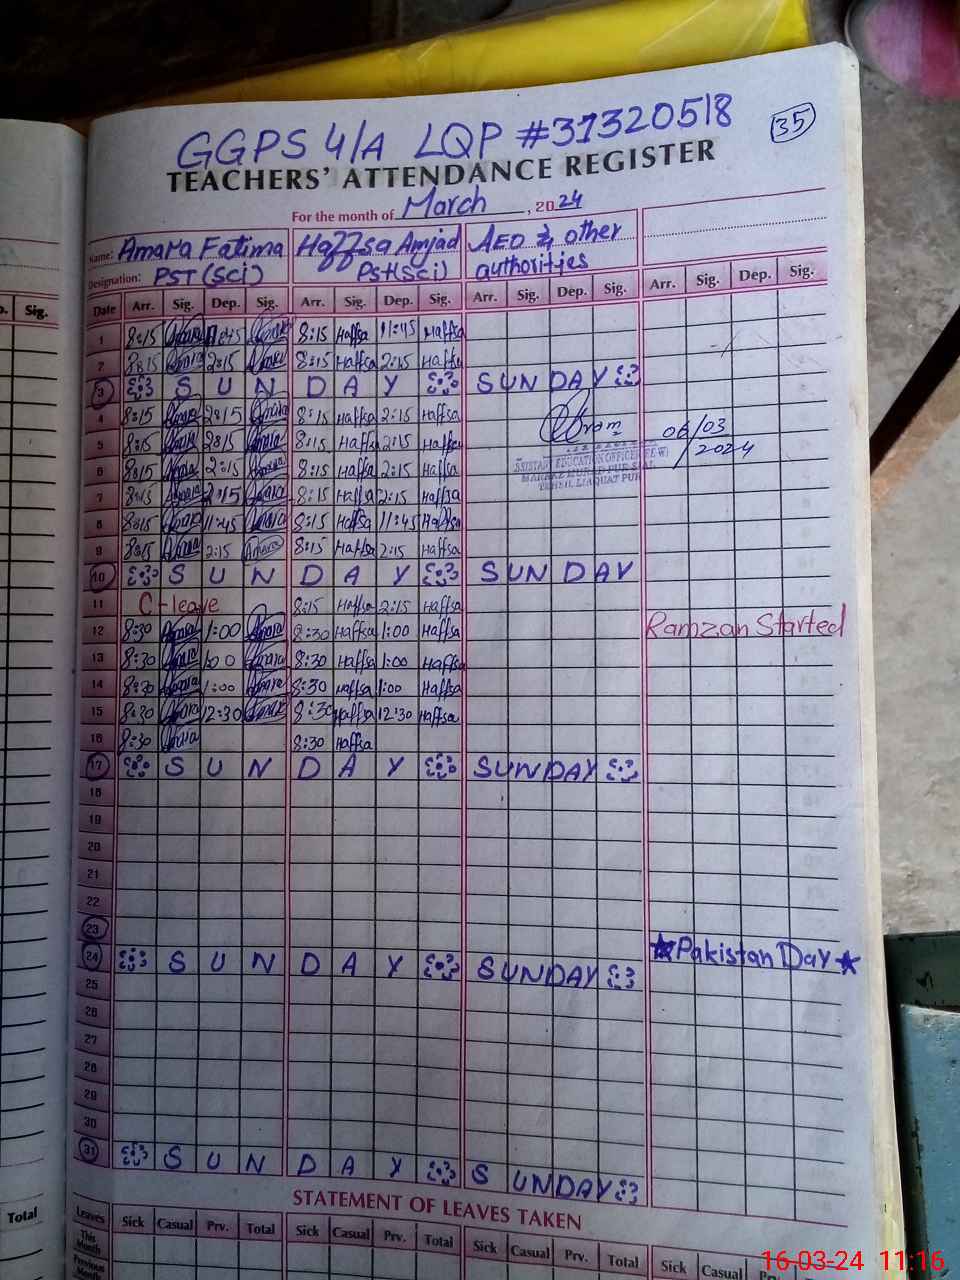 GGPS 4/A LQP #31320518
35
TEACHERS' ATTENDANCE REGISTER
For the month of March, 2024
Name: Amara Fatima Haffsa Amjad AEO & other
Designation: PST (Sci) Pst(Sci) authorities
Date Arr. Sig. Dep. Sig. Arr. Sig. Dep. Sig. Arr. Sig. Dep. Sig. Arr. Sig. Dep. Sig.
Sig.
1 8:15 Amara 11:45 Amara 8:15 Haffsa 11:45 Haffsa
2 8:15 Amara 2:15 Amara 8:15 Haffsa 2:15 Haffsa
3 SUN DAY SUNDAY
4 8:15 Amara 2:15 Amara 8:15 Haffsa 2:15 Haffsa
5 8:15 Amara 2:15 Amara 8:15 Haffsa 2:15 Haffsa 06/03
/2024
6 8:15 Amara 2:15 Amara 8:15 Haffsa 2:15 Haffsa
EDUCATION OFFICER
TEHSIL LIAQUAT PUR
7 8:15 Amara 2:15 Amara 8:15 Haffsa 2:15 Haffsa
8 8:15 Amara 11:45 Amara 8:15 Haffsa 11:45 Haffsa
9 8:15 Amara 2:15 Amara 8:15 Haffsa 2:15 Haffsa
10 SUN DAY SUN DAY
11 C-leave 8:15 Haffsa 2:15 Haffsa
12 8:30 Amara 1:00 Amara 8:30 Haffsa 1:00 Haffsa Ramzan Started
13 8:30 Amara 1:00 Amara 8:30 Haffsa 1:00 Haffsa
14 8:30 Amara 1:00 Amara 8:30 Haffsa 1:00 Haffsa
15 8:30 Amara 12:30 Amara 8:30 Haffsa 12:30 Haffsa
16 8:30 Amara 8:30 Haffsa
17 SUN DAY SUNDAY
18
19
20
21
22
23
24 SUN DAY SUNDAY ★Pakistan Day★
25
26
27
28
29
30
31 SUN DAY SUNDAY
STATEMENT OF LEAVES TAKEN
Total
Leaves Sick Casual Prv. Total Sick Casual Prv. Total Sick Casual Prv. Total Sick Casual
This Month
Previous
16-03-24 11:16